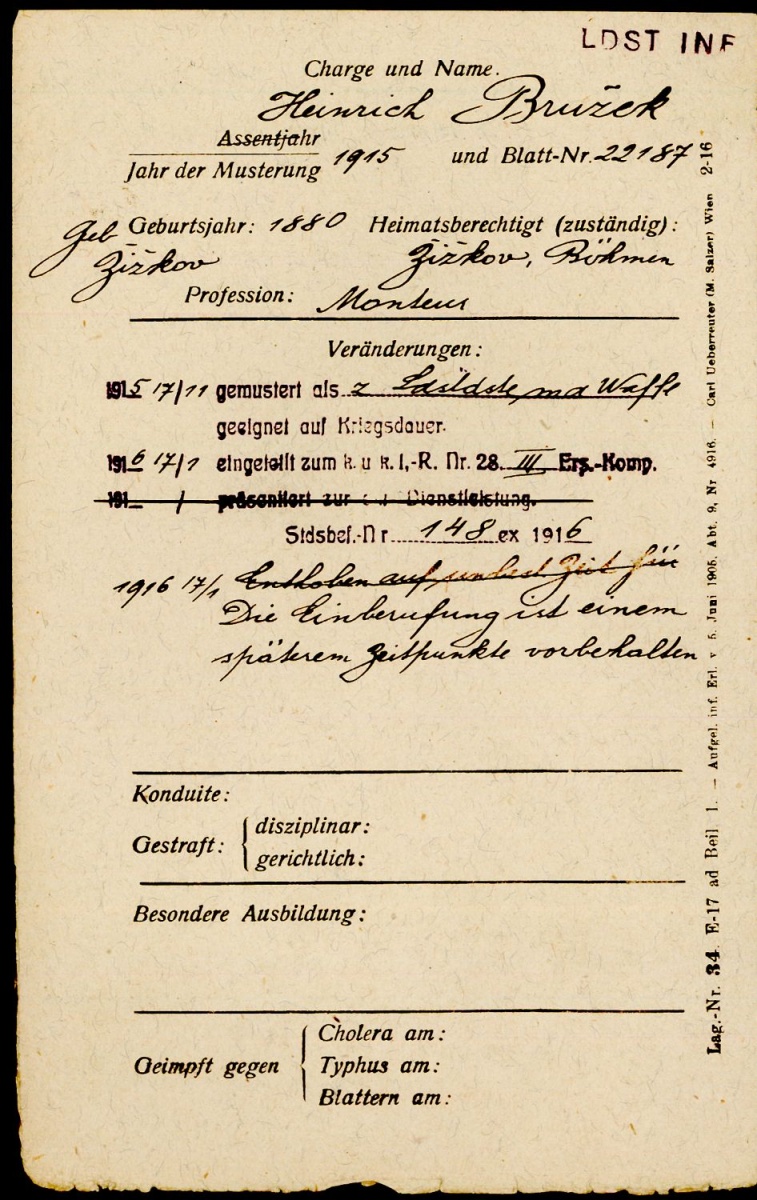 LDST INF
Charge und Name.
Heinrich Bružek
Assentjahr
Jahr der Musterung 1915 und Blatt-Nr. 22187
Geb Geburtsjahr: 1880 Heimatsberechtigt (zuständig):
Žižkov Žižkov, Böhmen
Profession: Monteur
Veränderungen:
1915 17/11 gemustert als z Waffe
geeignet auf Kriegsdauer.
1916 17/1 eingeteilt zum k. u k. I.-R. Nr. 28. III Ers.-Komp.
191 / präsentiert zur Dienstleistung.
Stdsbef.-Nr. 148 ex 1916
1916 17/1 Enthoben auf unbest Zeit für
Die Einberufung ist einem
späterem Zeitpunkte vorbehalten
Konduite:
Gestraft: { disziplinar:
gerichtlich:
Besondere Ausbildung:
Geimpft gegen { Cholera am:
Typhus am:
Blattern am:
Lag.-Nr. 34. E-17 ad Beil 1. — Aufgel. inf. Erl. v 5. Juni 1905. Abt. 9, Nr 4916. — Carl Ueberreuter (M. Salzer) Wien 2-16